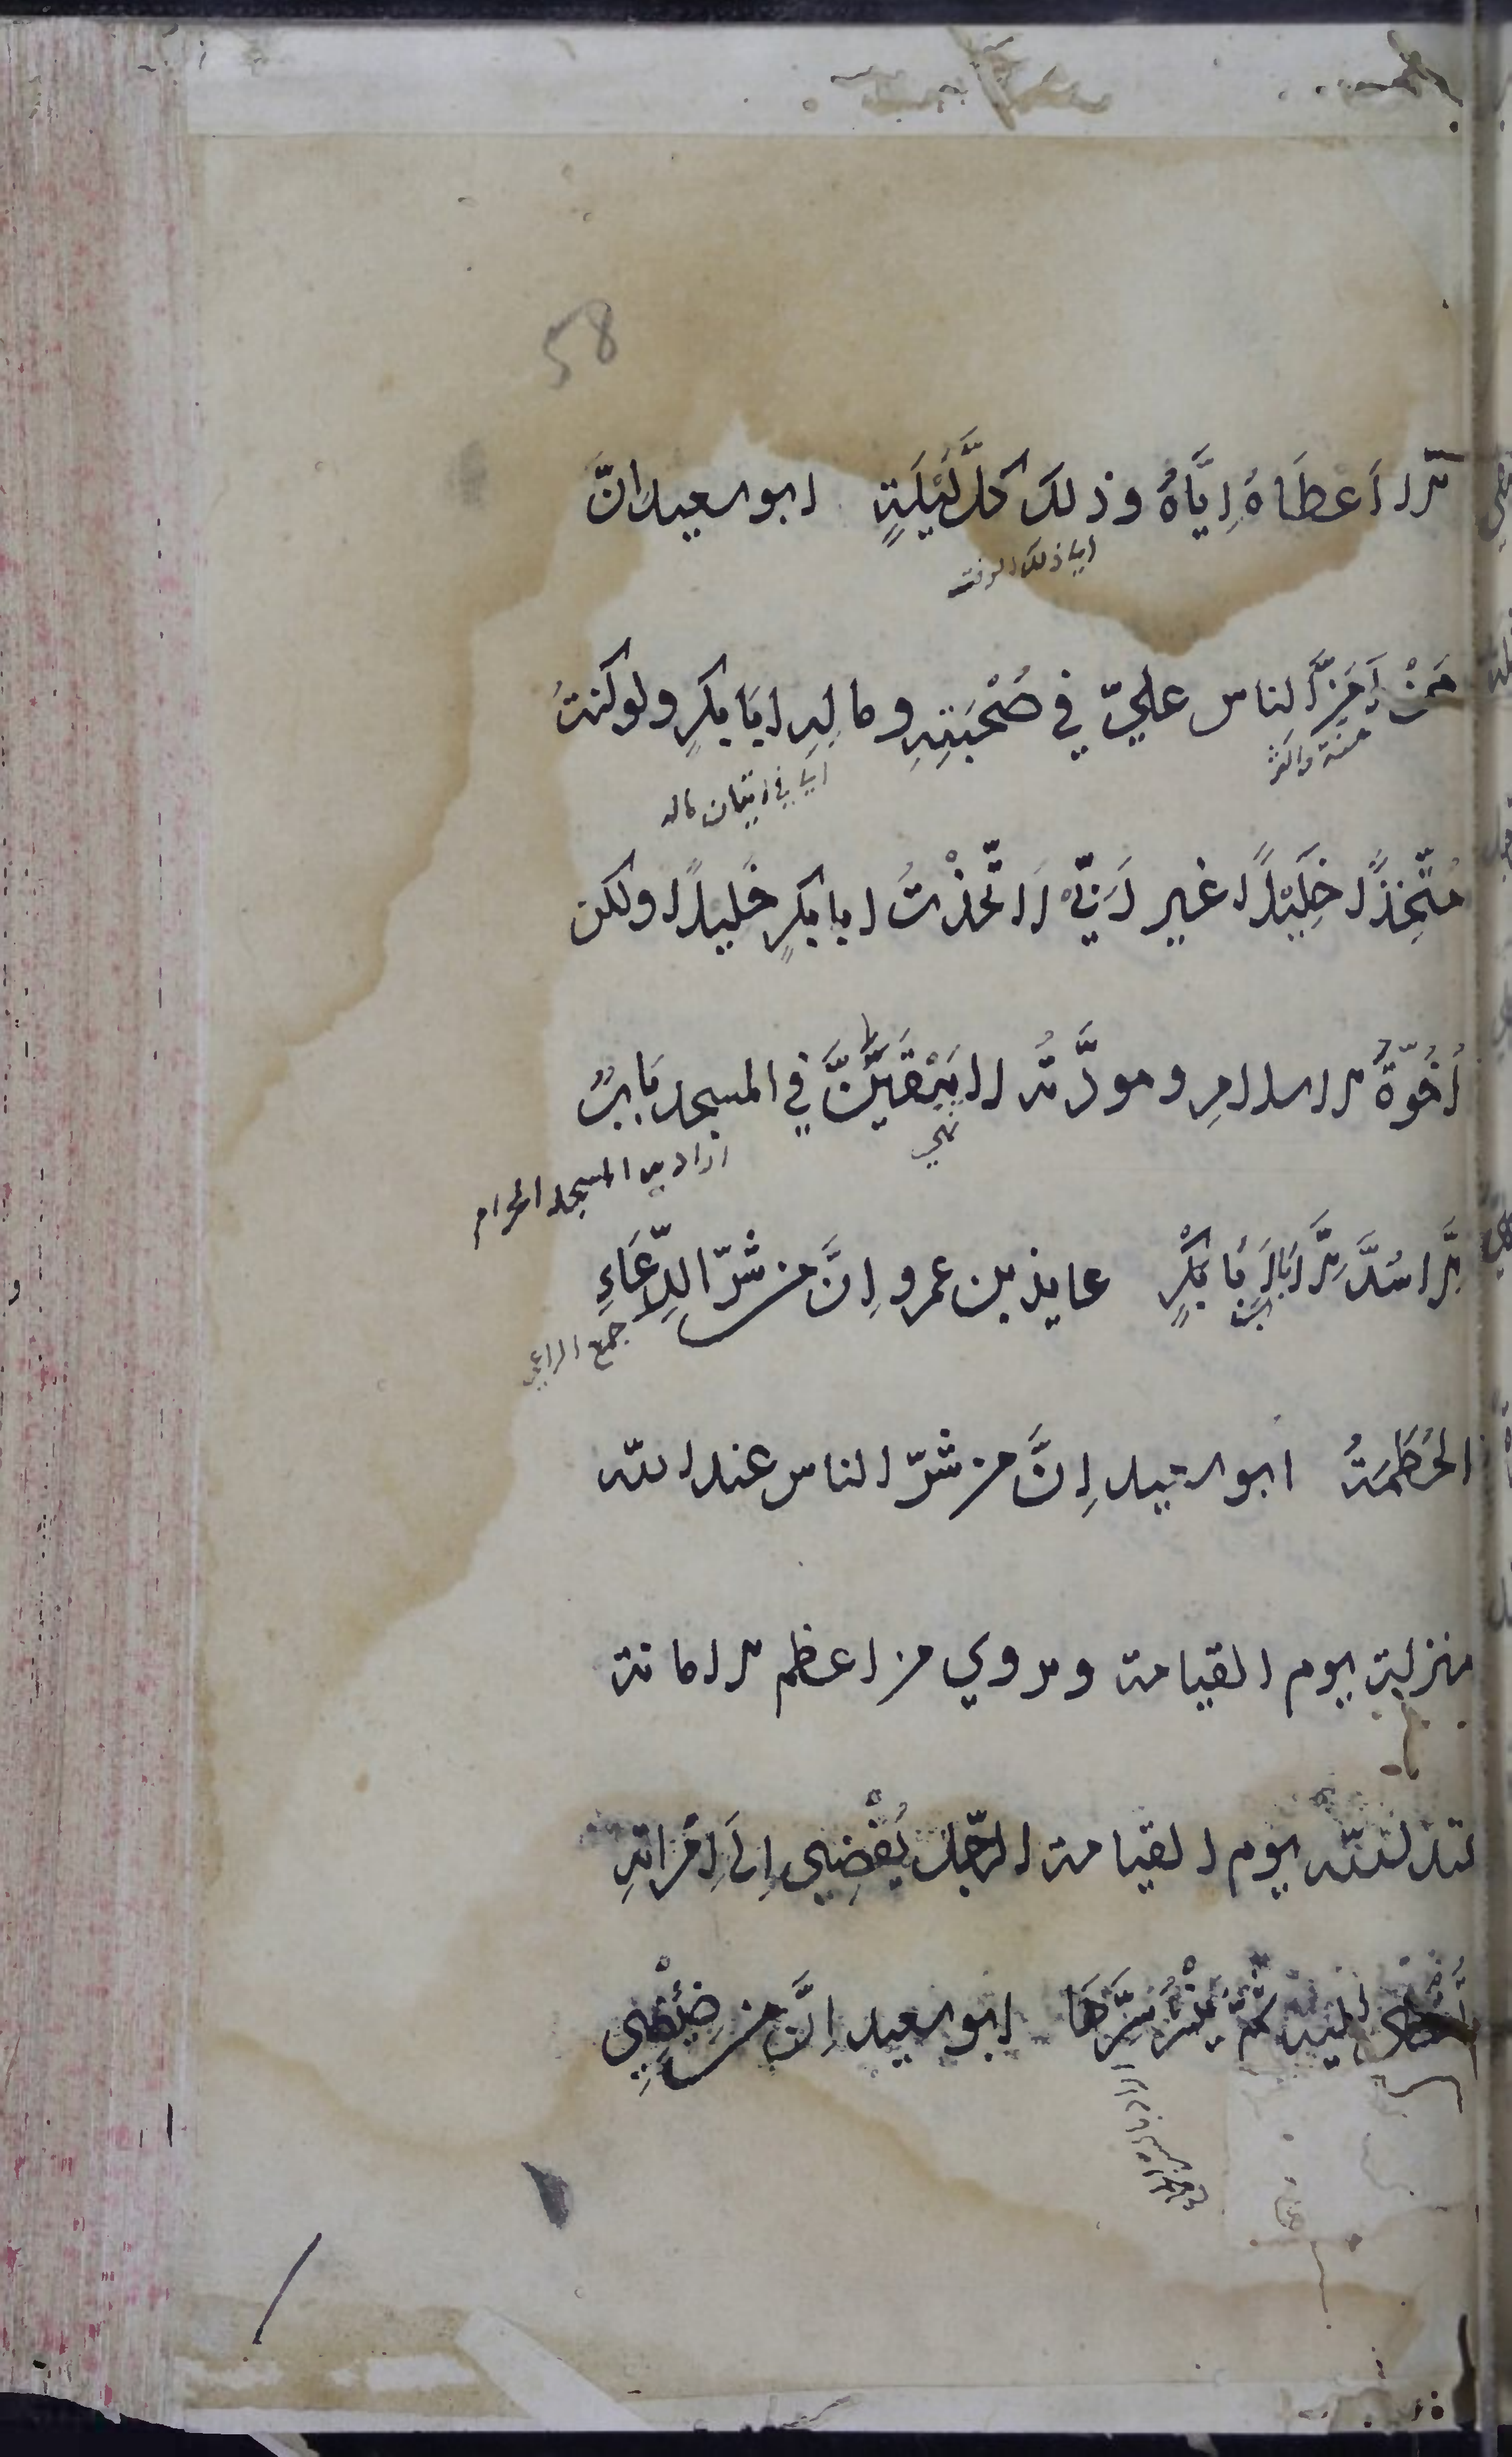 58
الّا اَعطَاهُ اِيَّاهُ وذلك كلَّ لَيْلَةٍ ابو سعيد انَّ
اي ذلك الوقت
مَنْ اَمَنِّ الناس عليّ في صُحْبَتِهِ ومالِهِ ابَا بكرٍ ولو كنتُ
منة واكثر
اي في اتيان ماله
مُتّخِذًا خَلِيْلًا غير رَبّي لَاتّخذْتُ ابا بكرٍ خليلًا ولكن
اُخُوّةُ الاسلامِ ومودَّتُه لا يَبْقَيَنَّ في المسجد بَابٌ
نهي
اراد به المسجد الحرام
اِلَّا سُدَّ اِلَّا بَابَ اَبي بَكْرٍ عايذ بن عمرو اِنَّ من شرّ الرِّعَاءِ
جمع الراعي
الحُطَمَةُ ابو سعيد اِنَّ من شرّ الناس عند الله
منزلة يوم القيامة ويروي من اعظم الامانة
عند الله يوم القيامة الرّجل يُفْضِي اِلَى اِمْرَاتِهِ
وتُفْضِي اليه ثُمَّ يَنْشُرُ سِرَّهَا ابو سعيد اِنَّ من ضِئْضِيِ